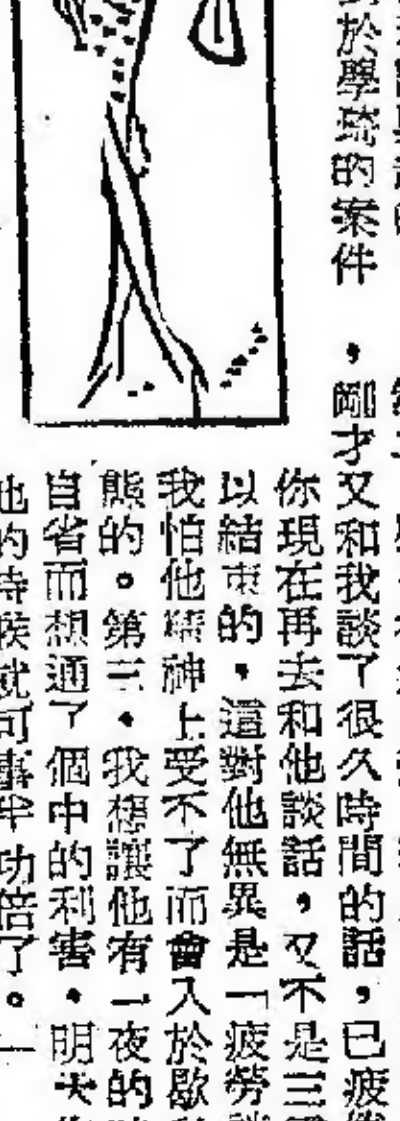 於學琉的案件，剛才又和我談了很久時間的話，已疲
你現在再去和他談話，又不是三
以結束的，這對他無異是「疲勞
我怕他精神上受不了而會入於歇
的。第三，我想讓他有一夜的
自省而想通了個中的利害，明天
他的時候就可事半功倍了。